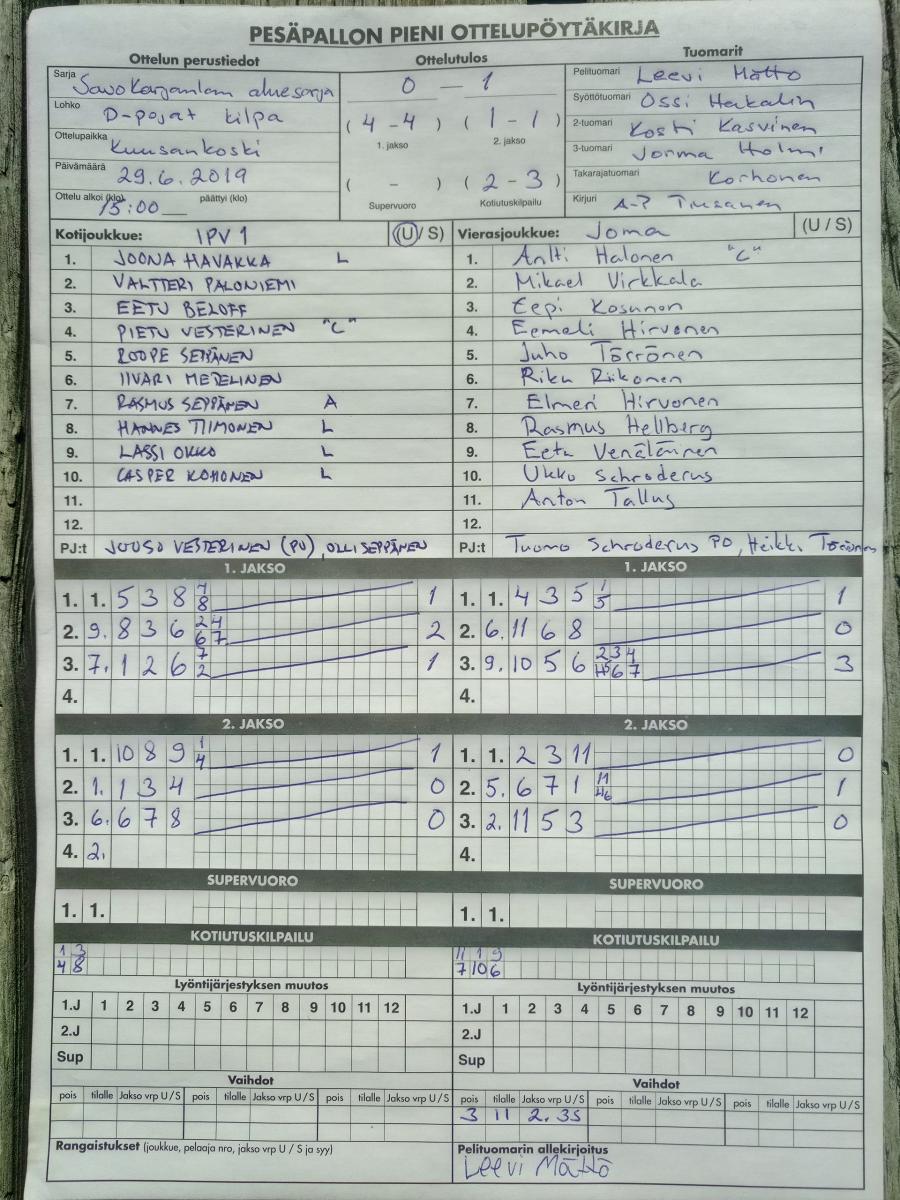 PESÄPALLON PIENI OTTELUPÖYTÄKIRJA
Ottelun perustiedot
Sarja Savo Karjanlam aluesarja
Lohko D-pojat kilpa
Ottelupaikka Kuusankoski
Päivämäärä 29.6.2019
Ottelu alkoi (klo) 15:00 päättyi (klo)
Ottelutulos
0 — 1
( 4 - 4 ) ( 1 - 1 )
1. jakso 2. jakso
( - ) ( 2 - 3 )
Supervuoro Kotiutuskilpailu
Tuomarit
Pelituomari Leevi Mättö
Syöttötuomari Ossi Hakalin
2-tuomari Kosti Kasvinen
3-tuomari Jorma Holmi
Takarajatuomari Korhonen
Kirjuri A-P Tiusanen
Kotijoukkue: IPV 1 (U / S)
1. JOONA HAVAKKA L
2. VALTTERI PALONIEMI
3. EETU BELOFF
4. PIETU VESTERINEN "C"
5. ROOPE SEPPÄNEN
6. IIVARI METELINEN
7. RASMUS SEPPÄNEN A
8. HANNES TIIMONEN L
9. LASSI OKKO L
10. CASPER KOHONEN L
11.
12.
PJ:t JOUSO VESTERINEN (PV), OLLI SEPPÄNEN
Vierasjoukkue: Joma (U / S)
1. Antti Halonen "C"
2. Mikael Virkkala
3. Eepi Kosunon
4. Eemeli Hirvonen
5. Juho Törrönen
6. Riku Riikonen
7. Elmeri Hirvonen
8. Rasmus Hellberg
9. Eetu Venäläinen
10. Ukko Schroderus
11. Anton Tallus
12.
PJ:t Tuomo Schroderus PO, Heikki Törrönen
1. JAKSO
1. 1. 5 3 8 7 8 1
2. 9. 8 3 6 2 4 6 7 2
3. 7. 1 2 6 7 2 1
4.
1. JAKSO
1. 1. 4 3 5 1 5 1
2. 6. 11 6 8 0
3. 9. 10 5 6 2 3 4 4 5 6 7 3
4.
2. JAKSO
1. 1. 10 8 9 1 4 1
2. 1. 1 3 4 0
3. 6. 6 7 8 0
4. 2.
2. JAKSO
1. 1. 2 3 11 0
2. 5. 6 7 1 11 4 6 1
3. 2. 11 5 3 0
4.
SUPERVUORO
1. 1.
SUPERVUORO
1. 1.
KOTIUTUSKILPAILU
1 3
4 8
KOTIUTUSKILPAILU
11 1 9
7 10 6
Lyöntijärjestyksen muutos
1.J 1 2 3 4 5 6 7 8 9 10 11 12
2.J
Sup
Lyöntijärjestyksen muutos
1.J 1 2 3 4 5 6 7 8 9 10 11 12
2.J
Sup
Vaihdot
pois tilalle Jakso vrp U / S pois tilalle Jakso vrp U / S pois tilalle Jakso vrp U / S
Vaihdot
pois tilalle Jakso vrp U / S pois tilalle Jakso vrp U / S pois tilalle Jakso vrp U / S
3 11 2. 3S
Rangaistukset (joukkue, pelaaja nro, jakso vrp U / S ja syy)
Pelituomarin allekirjoitus
Leevi Mättö